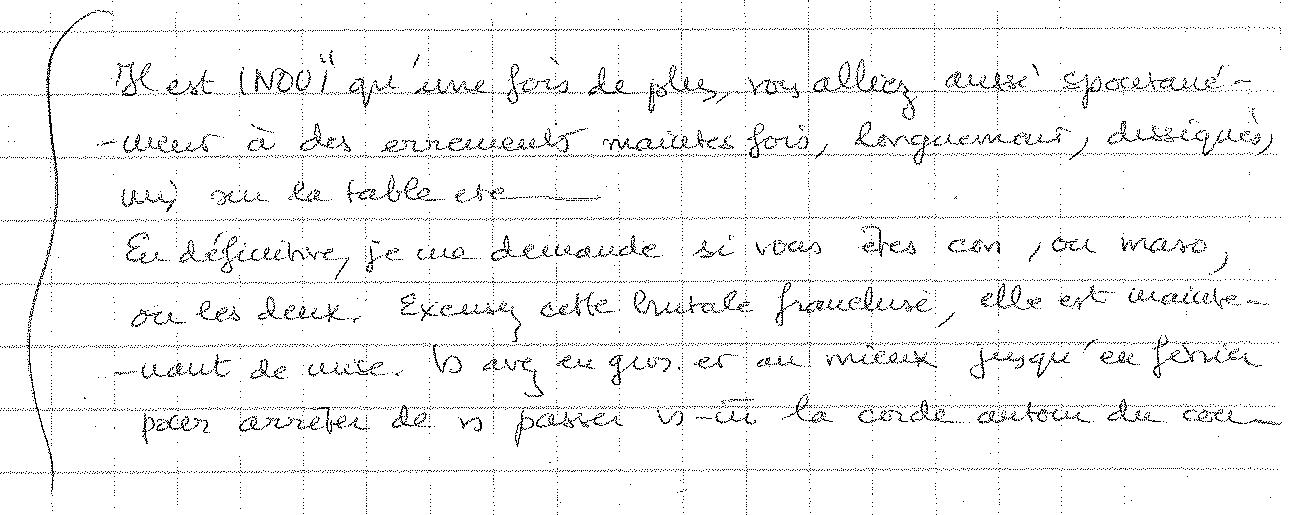 Il est INOUÏ qu'une fois de plus, vous alliez aussi spontané-
-ment à des errements maintes fois, longuement, disséqués,
mis sur la table etc
En définitive, je me demande si vous êtes con, ou maso,
ou les deux. Excusez cette brutale franchise, elle est mainte-
-nant de mise. Vs avez en gros et au mieux jusqu'en février
pour arrêter de vs passer vs-m̄ la corde autour du cou